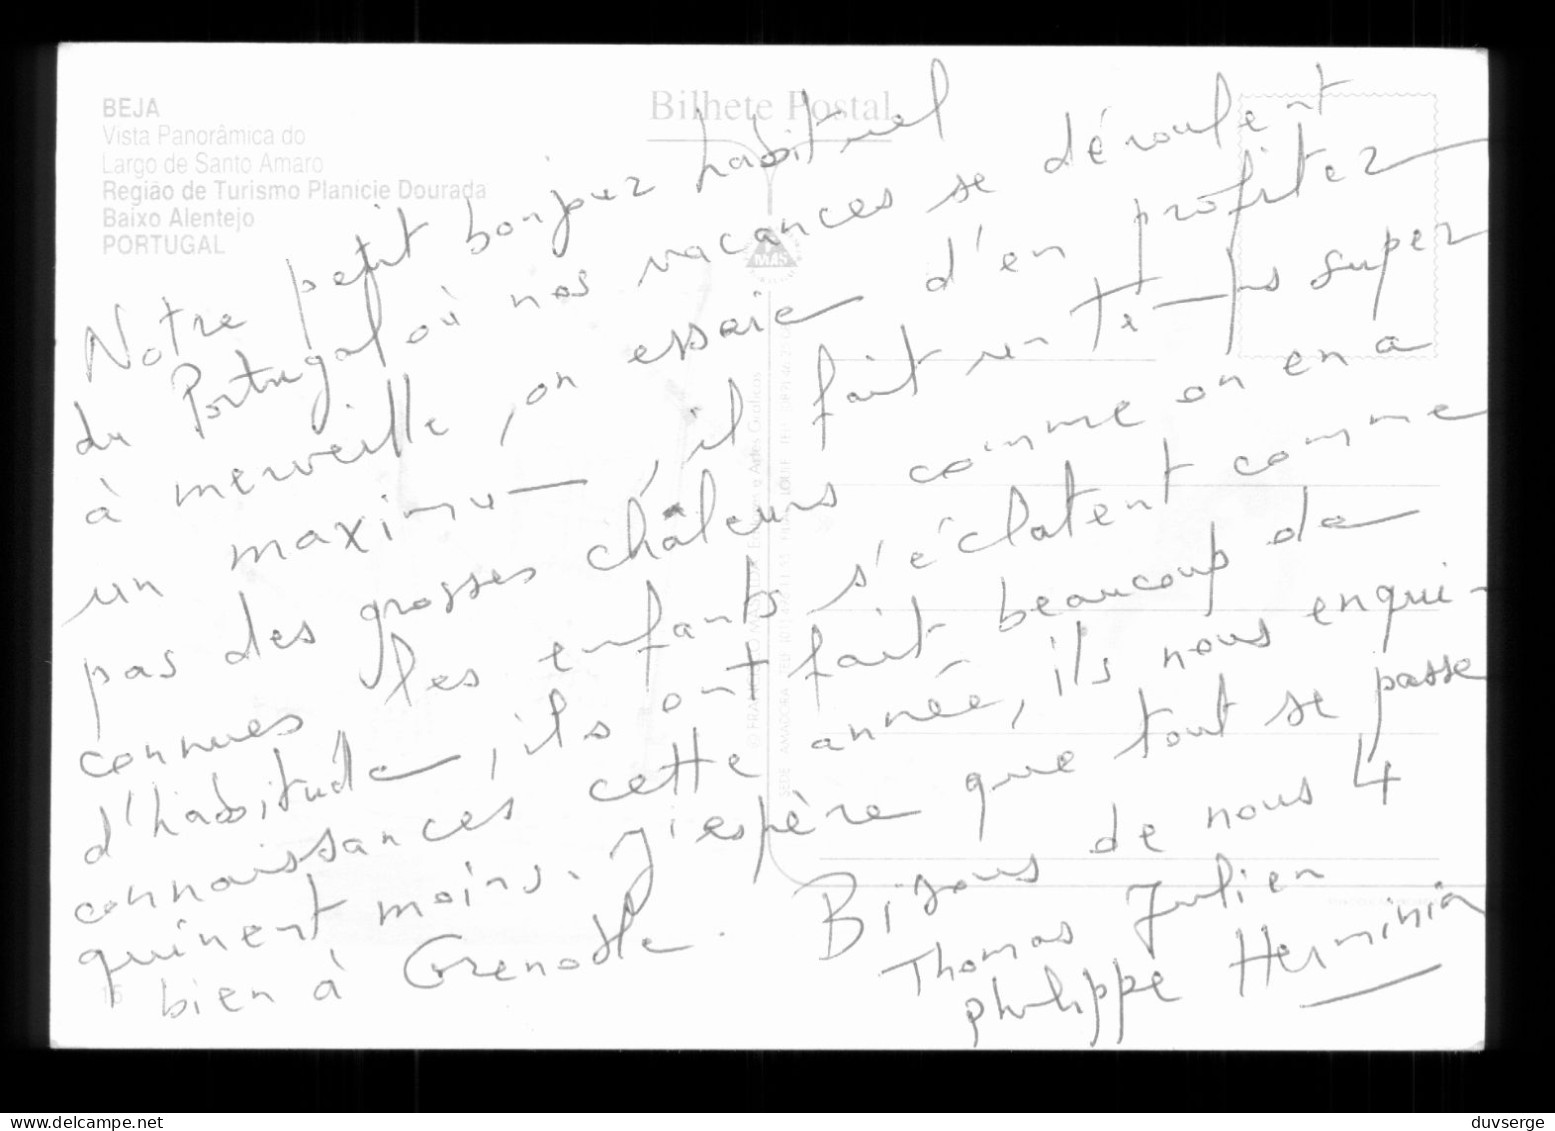 BEJA
Vista Panorâmica do
Largo de Santo Amaro
Região de Turismo Planície Dourada
Baixo Alentejo
PORTUGAL
Bilhete Postal
MAS
Notre petit bonjour habituel
du Portugal où nos vacances se déroulent
à merveille, on essaie d'en profiter
un maximum, il fait un temps super
pas des grosses châleurs comme on en a
connues les enfants s'éclatent comme
d'habitude, ils ont fait beaucoup de
connaissances cette année, ils nous enqui-
quinent moins. J'espère que tout se passe
bien à Grenoble. Bisous de nous 4
Thomas Julien
philippe Herminia
15
www.delcampe.net
duvserge